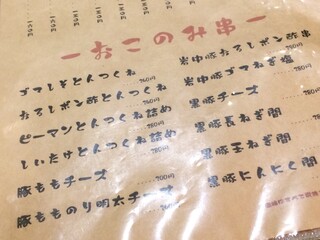 おこのみ串
ゴマしそとんつくね
780円
おろしポン酢とんつくね
780円
ピーマンとんつくね詰め
780円
しいたけとんつくね詰め
780円
豚ももチーズ
700円
豚もものり明太チーズ
780円
岩中豚おろしポン酢串
岩中豚ゴマねぎ塩
780円
黒豚チーズ
黒豚長ねぎ間
黒豚玉ねぎ間
黒豚にんにく間